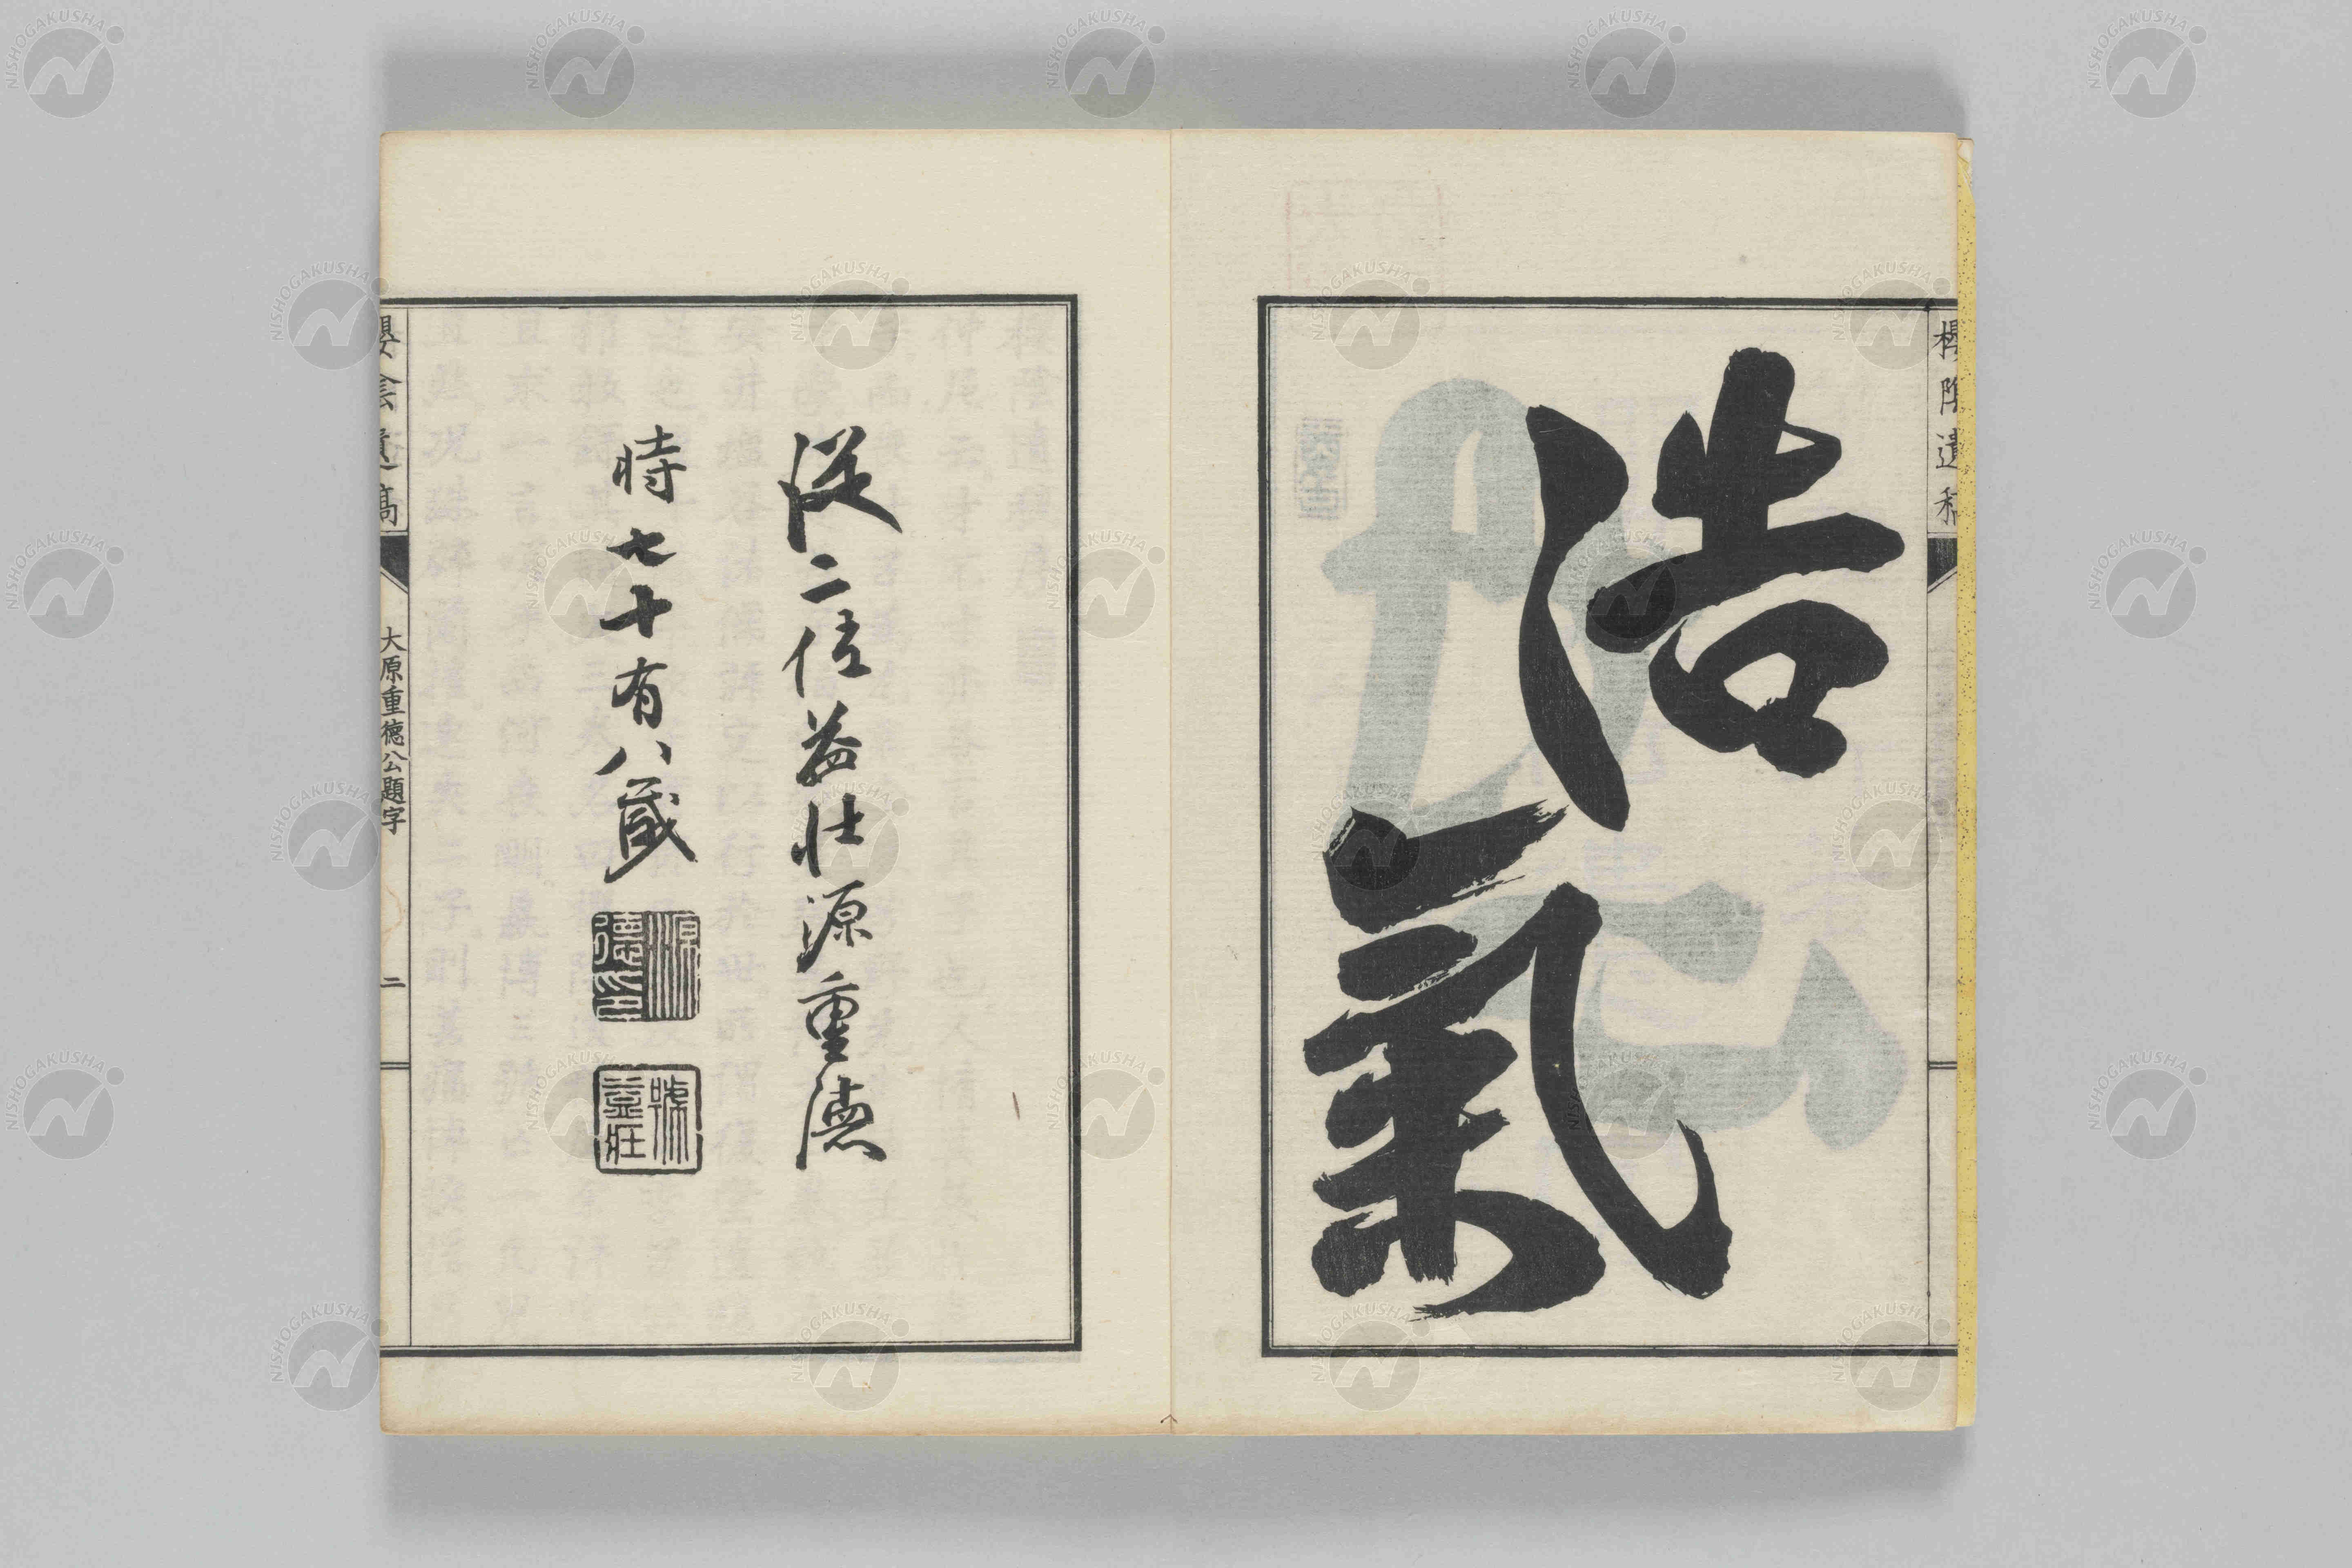 櫻陰遺稿
浩
氣
從二位益壮源重德
時七十有八歳
源重德印
號益莊
櫻陰遺稿
大原重德公題字
二
NISHOGAKUSHA